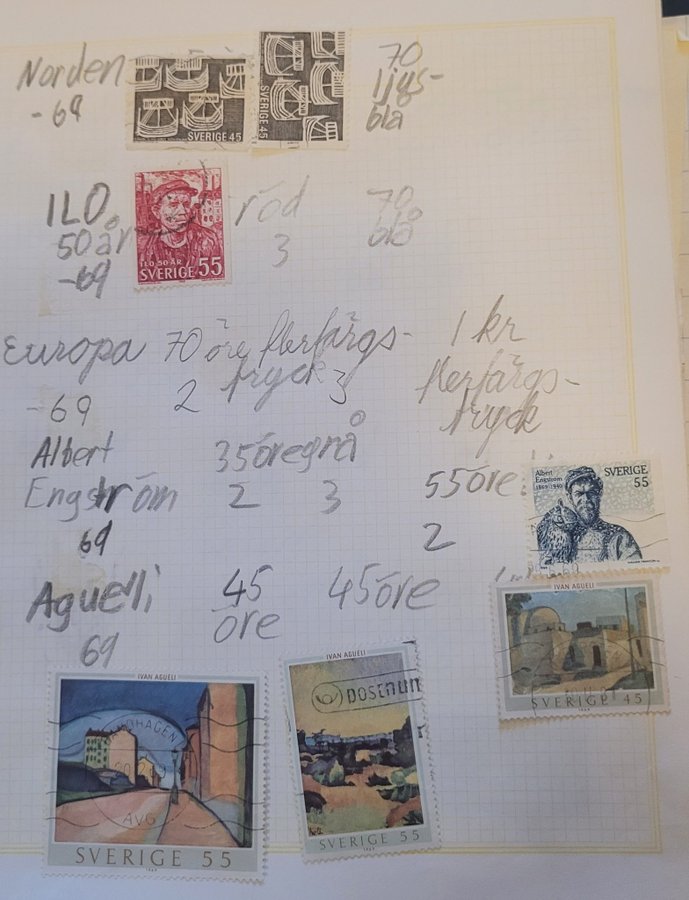 Norden
-69
SVERIGE 45
SVERIGE 45
70
ljus-
blå
ILO
50 år
-69
ILO 50 ÅR
SVERIGE 55
röd
3
70
blå
Europa 70 öre flerfärgs-
tryck
-69 2 3
1 kr
flerfärgs-
tryck
Albert
Engström
69
35 öre grå
2 3
55 öre
2
Albert
Engström
1869-1940
SVERIGE
55
Aguelli
69
45
öre
45 öre
IVAN AGUÉLI
SVERIGE 45
IVAN AGUÉLI
AVG
SVERIGE 55
1969
IVAN AGUÉLI
postnum
SVERIGE 55
1969